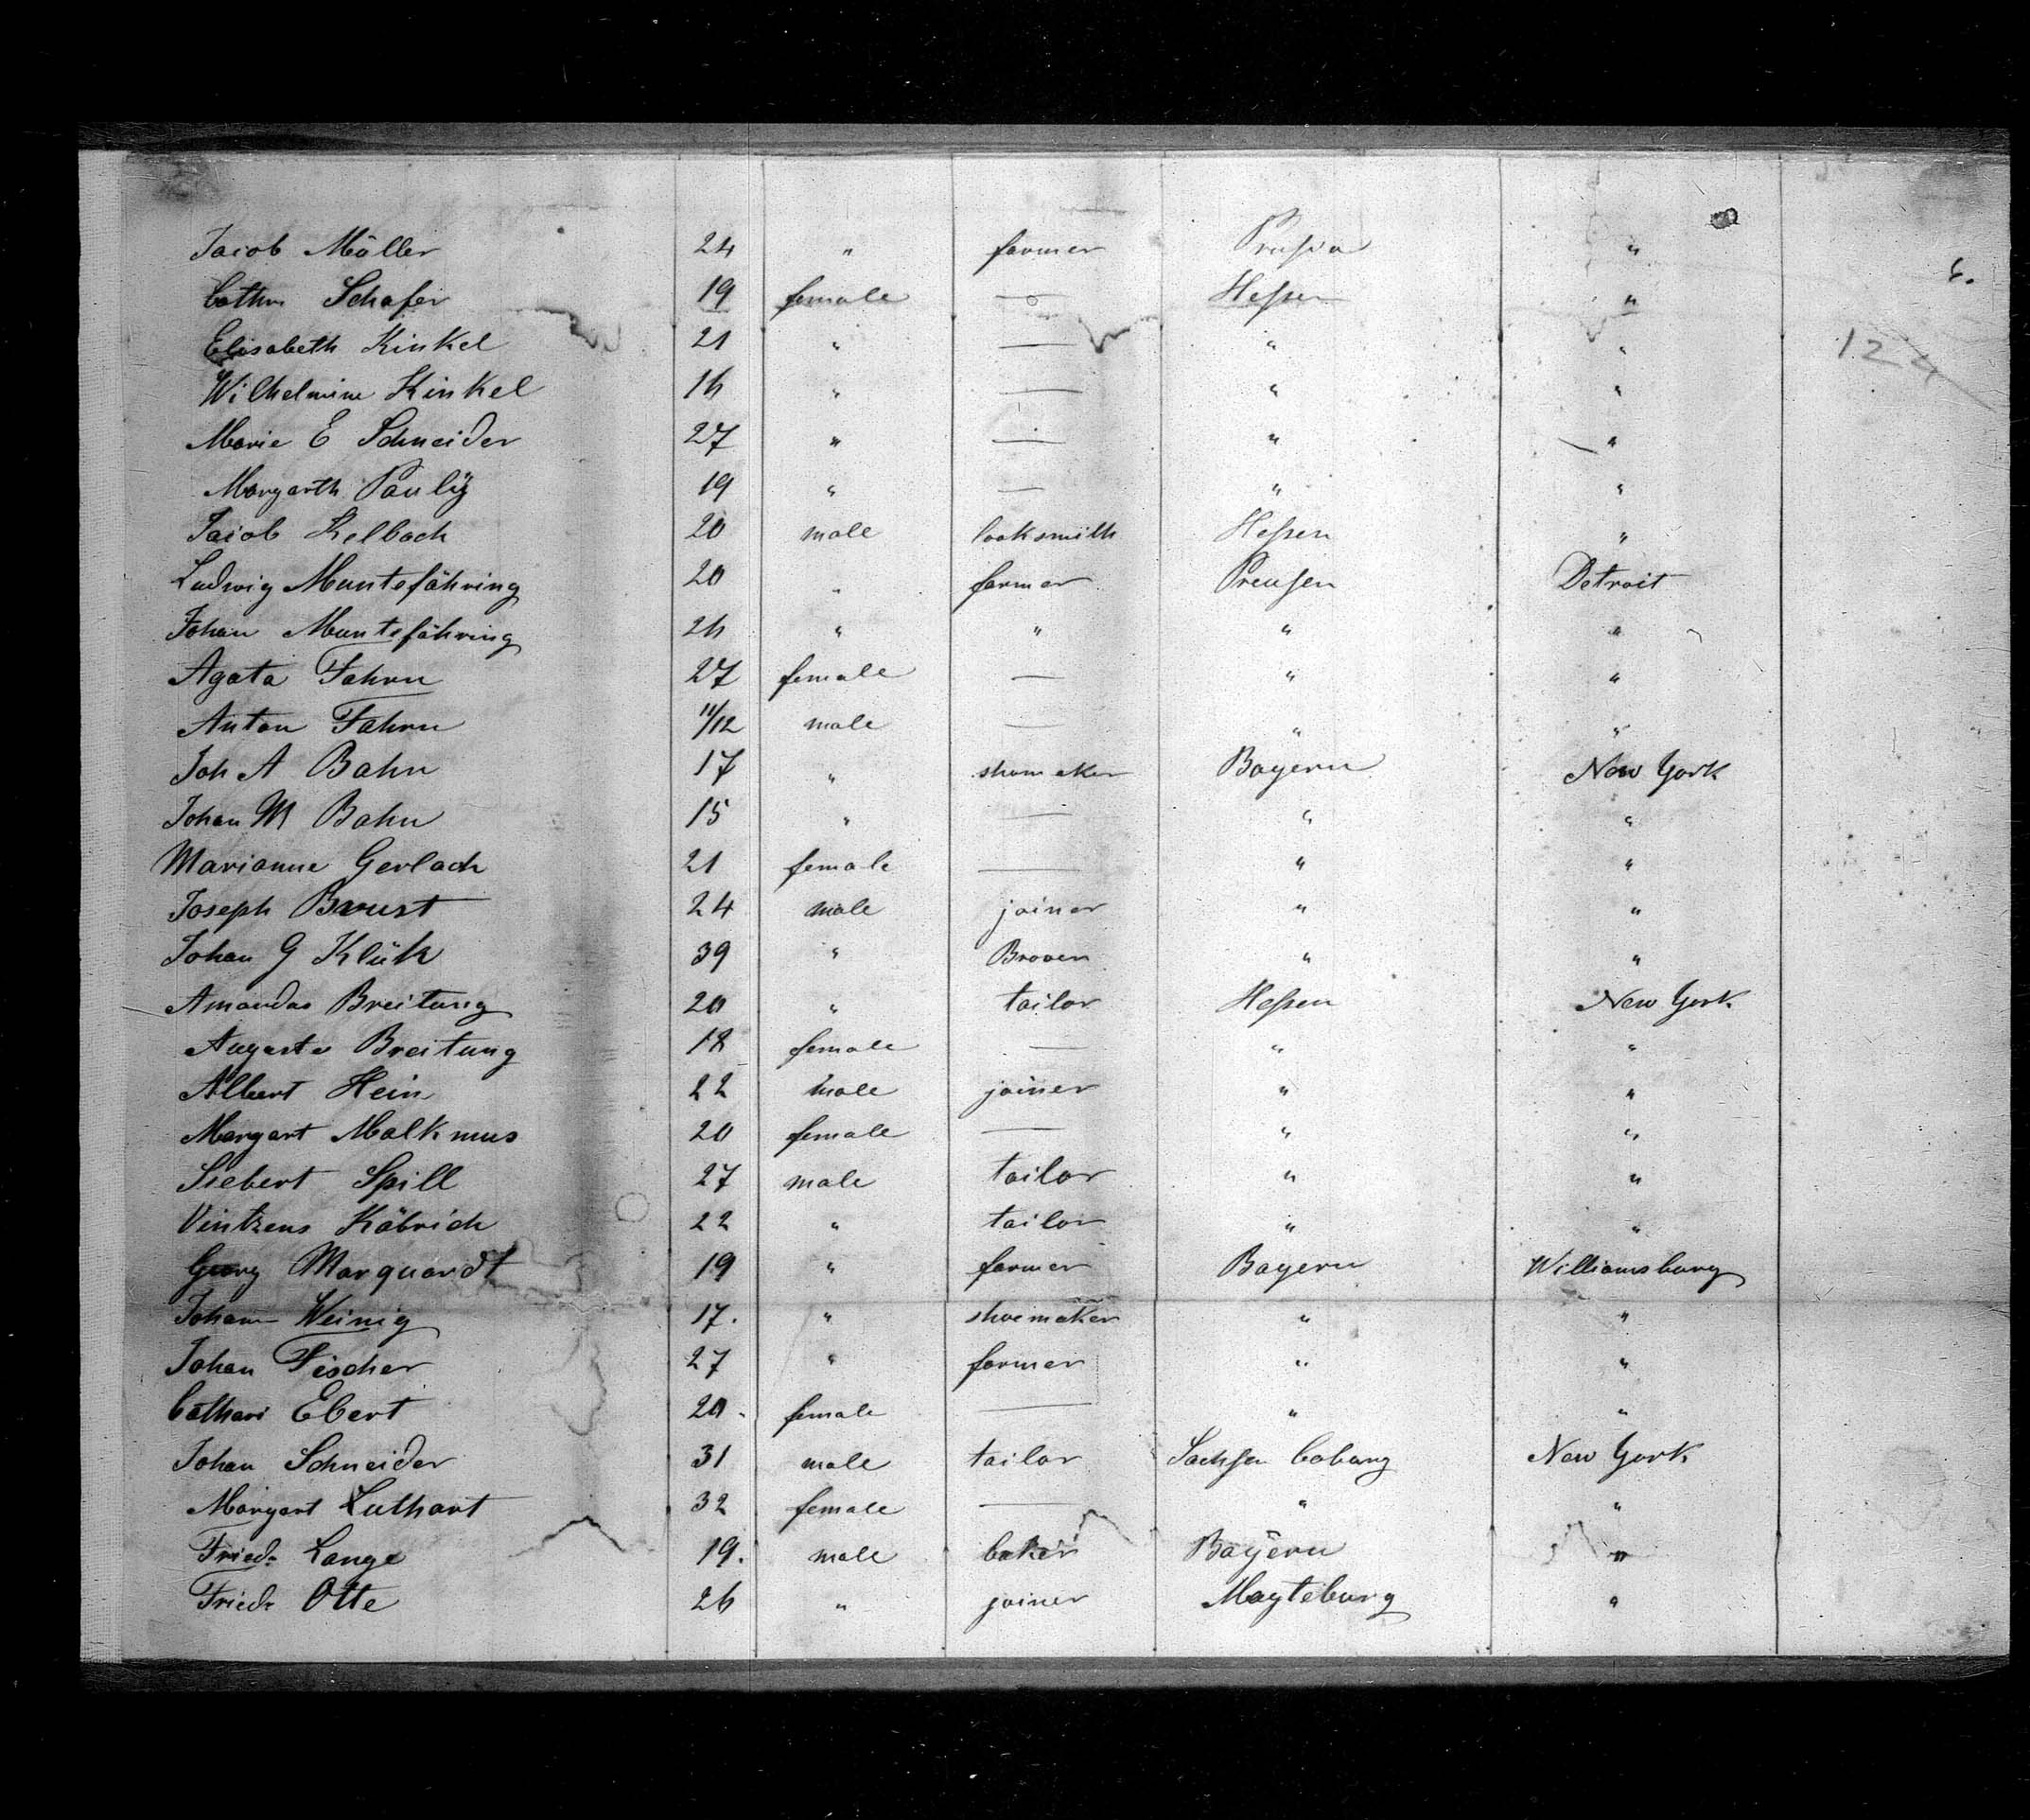 Jacob Möller 24 " farmer Prussia "
6.
Cathr. Schafer 19 female — Hessen "
Elisabeth Kinkel 21 " — " "
124
Wilhelmine Kinkel 16 " — " "
Marie E Schneider 27 " — " "
Margarth Paulÿ 19 " — " "
Jacob Kelbach 20 male looksmith Hessen "
Ludwig Muntefähring 20 " farmer Preusen Detroit
Johan Muntefähring 26 " " " "
Agata Fahrn 27 female — " "
Anton Fahrn 11/12 male — " "
Joh A Bahn 17 " shomaker Bayern New York
Johan M Bahn 15 " — " "
Marianne Gerlach 21 female — " "
Joseph Brust 24 male joiner " "
Johan G Klük 39 " Brower " "
Amandas Breitung 20 " tailor Hessen New York
Auguste Breitung 18 female — " "
Albert Hein 22 male joiner " "
Margart Malkmus 20 female — " "
Siebert Spill 27 male tailor " "
Vintzens Käbrich 22 " tailor " "
Georg Marquardt 19 " farmer Bayern Williamsburg
Johann Weinig 17. " shoemaker " "
Johan Fischer 27 " farmer " "
Cathari Ebert 20. female — " "
Johan Schneider 31 male tailor Sachsen Coburg New York
Margart Luthart 32 female — " "
Friedr Lange 19. male baker Bayern "
Friedr Otte 26 " joiner Magteburg "